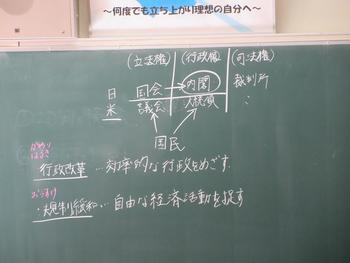 ～何度でも立ち上がり理想の自分へ～
(立法権) (行政権) (司法権)
日 国会 内閣 裁判所
米 議会 大統領 :
国民
行政改革…効率的な行政をめざす.
・規制緩和…自由な経済活動を促す